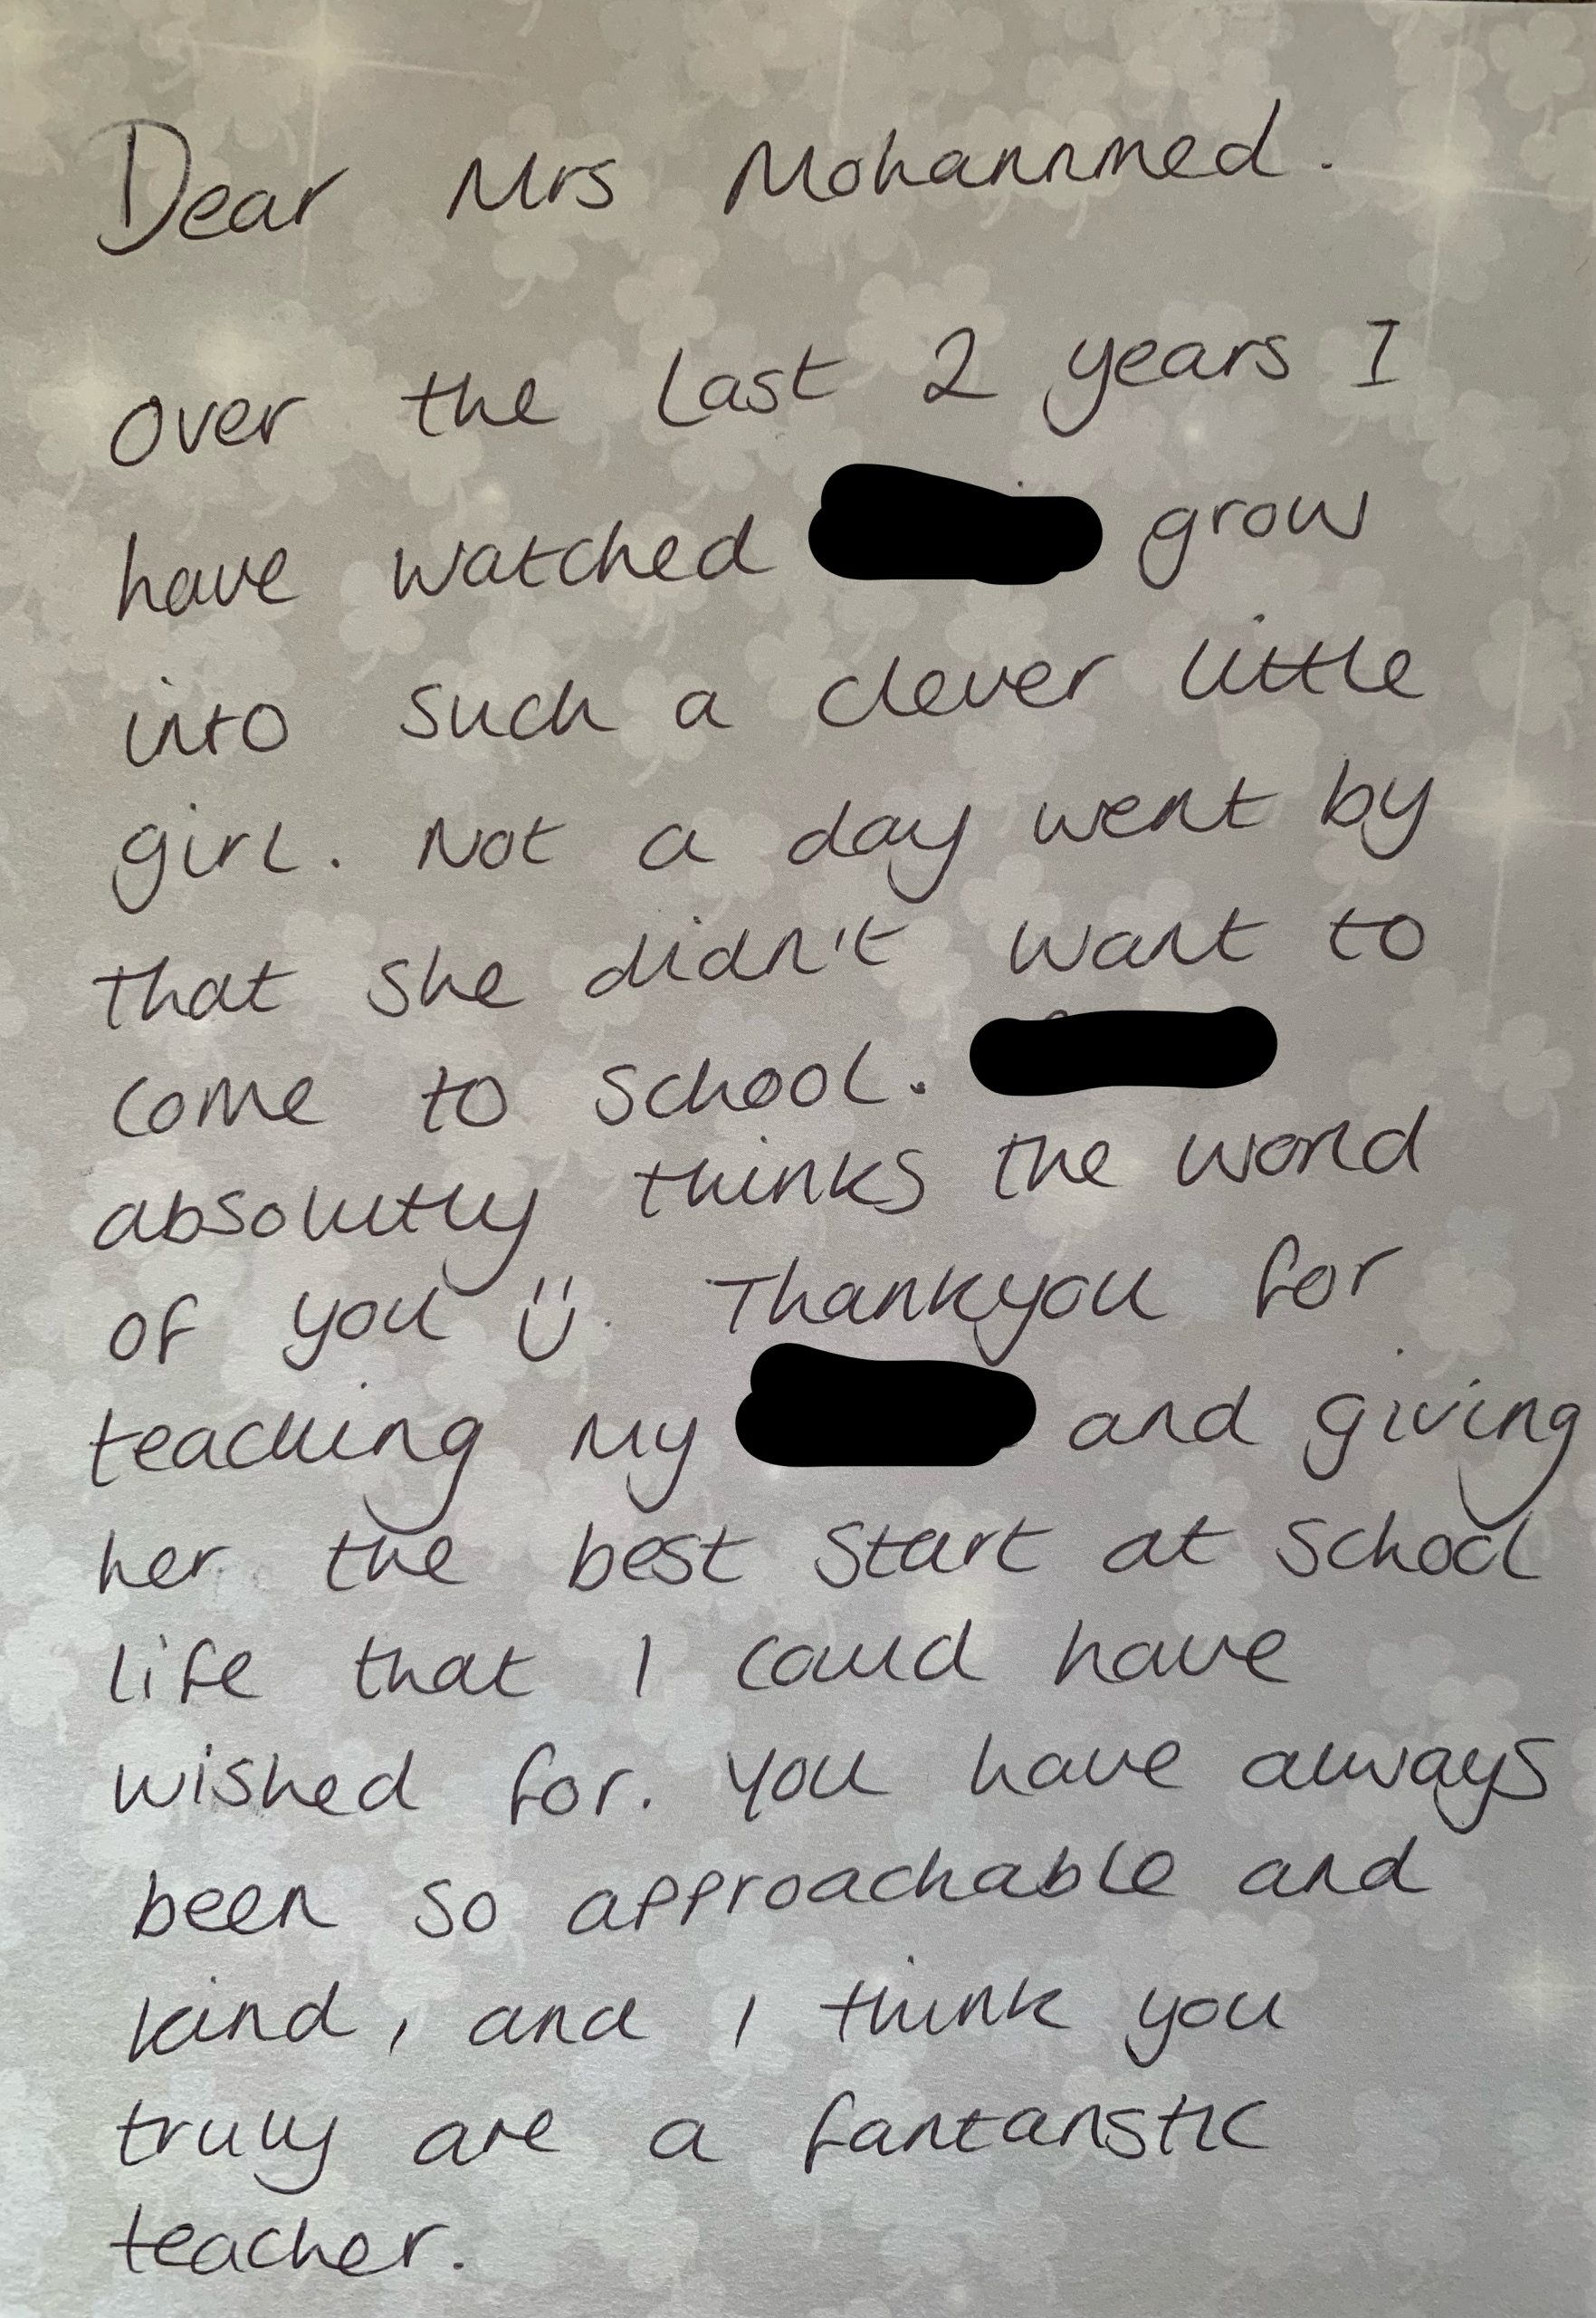 Dear Mrs Mohammed.
Over the last 2 years I
have watched grow
into such a clever little
girl. Not a day went by
that she didn't want to
come to school.
absolutly thinks the world
of you Ü. Thankyou for
teaching my and giving
her the best start at school
life that I could have
wished for. You have always
been so approachable and
kind, and I think you
truly are a fantanstic
teacher.